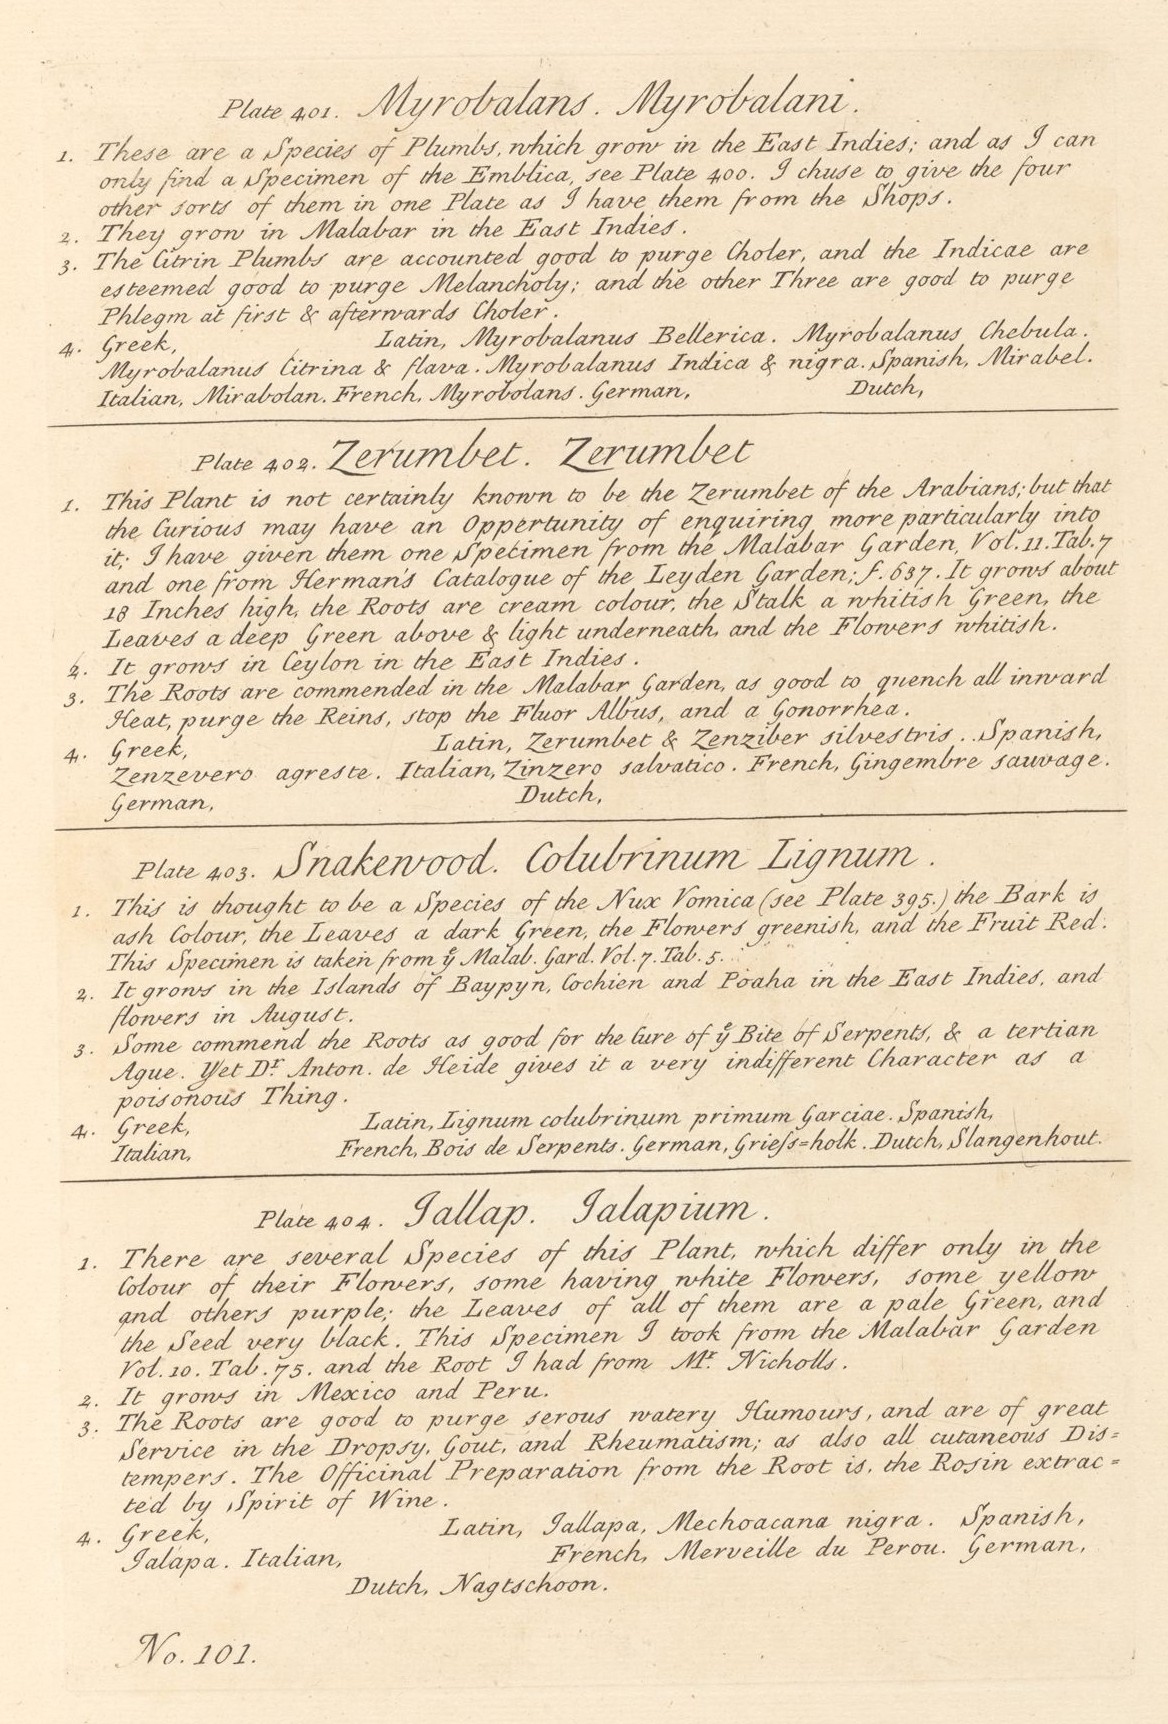 Plate 401. Myrobalans. Myrobalani.
1. These are a Species of Plumbs, which grow in the East Indies; and as I can
only find a Specimen of the Emblica, see Plate 400. I chuse to give the four
other sorts of them in one Plate as I have them from the Shops.
2. They grow in Malabar in the East Indies.
3. The Citrin Plumbs are accounted good to purge Choler, and the Indicae are
esteemed good to purge Melancholy; and the other Three are good to purge
Phlegm at first & afterwards Choler.
4. Greek, Latin, Myrobalanus Bellerica. Myrobalanus Chebula.
Myrobalanus Citrina & flava. Myrobalanus Indica & nigra. Spanish, Mirabel.
Italian, Mirabolan. French, Myrobolans. German, Dutch,
Plate 402. Zerumbet. Zerumbet
1. This Plant is not certainly known to be the Zerumbet of the Arabians; but that
the Curious may have an Oppertunity of enquiring more particularly into
it; I have given them one Specimen from the Malabar Garden, Vol. 11. Tab. 7
and one from Herman's Catalogue of the Leyden Garden; f. 637. It grows about
18 Inches high, the Roots are cream colour, the Stalk a whitish Green, the
Leaves a deep Green above & light underneath, and the Flowers whitish.
2. It grows in Ceylon in the East Indies.
3. The Roots are commended in the Malabar Garden, as good to quench all inward
Heat, purge the Reins, stop the Fluor Albus, and a Gonorrhea.
4. Greek, Latin, Zerumbet & Zenziber silvestris. Spanish,
Zenzevero agreste. Italian, Zinzero salvatico. French, Gingembre sauvage.
German, Dutch,
Plate 403. Snakewood. Colubrinum Lignum.
1. This is thought to be a Species of the Nux Vomica (see Plate 395.) the Bark is
ash Colour, the Leaves a dark Green, the Flowers greenish, and the Fruit Red.
This Specimen is taken from ye Malab. Gard. Vol. 7. Tab. 5.
2. It grows in the Islands of Baypyn, Cochien and Poaha in the East Indies, and
flowers in August.
3. Some commend the Roots as good for the Cure of ye Bite of Serpents, & a tertian
Ague. Yet Dr. Anton. de Heide gives it a very indifferent Character as a
poisonous Thing.
4. Greek, Latin, Lignum colubrinum primum Garciae. Spanish,
Italian, French, Bois de Serpents. German, Grieſs=holk. Dutch, Slangenhout.
Plate 404. Jallap. Jalapium.
1. There are several Species of this Plant, which differ only in the
Colour of their Flowers, some having white Flowers, some yellow
and others purple; the Leaves of all of them are a pale Green, and
the Seed very black. This Specimen I took from the Malabar Garden
Vol. 10. Tab. 75. and the Root I had from Mr. Nicholls.
2. It grows in Mexico and Peru.
3. The Roots are good to purge serous watery Humours, and are of great
Service in the Dropsy, Gout, and Rheumatism; as also all cutaneous Dis=
tempers. The Officinal Preparation from the Root is, the Rosin extrac=
ted by Spirit of Wine.
4. Greek, Latin, Jallapa, Mechoacana nigra. Spanish,
Jalapa. Italian, French, Merveille du Perou. German,
Dutch, Nagtschoon.
No. 101.